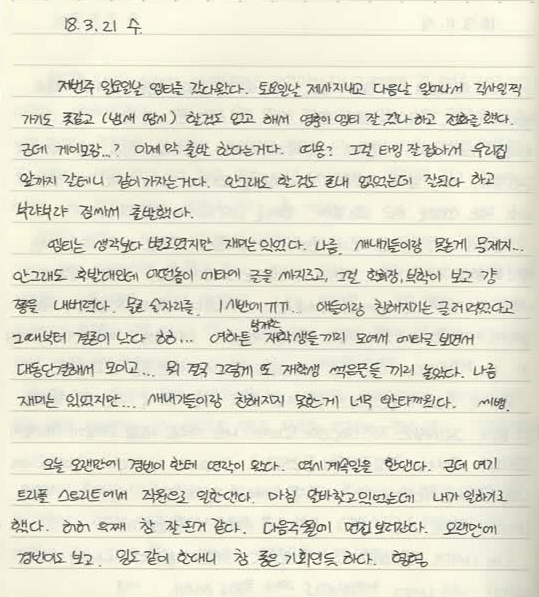 18. 3. 21 수.
저번주 일요일날 엠티를 갔다왔다. 토요일날 제사지내고 다음날 일어나서 집사일찍
가기도 뭣같고 (냄새 땜시) 할것도 없고 해서 영훈이 엠티 잘 갔나 하고 전화를 했다.
근데 게이모람...? 이제 막 출발 한다는거다. 띠용? 그런 타이밍 잘 잡아서 우리집
앞까지 갈테니 같이가자는거다. 안그래도 할것도 없었는데 잘됐다 하고
부랴부랴 짐싸서 출발했다.
엠티는 생각보다 별로였지만 재미는 있었다. 나름. 새내기들이랑 못논게 문제지...
안그래도 후발대인데 어떤놈이 에타에 글을 싸지르고, 그걸 학회장, 부학이 보고 걍
쫑을 내버렸다. 물론 술자리를. 1시반에 ㅠㅠ... 애들이랑 친해지기는 글러먹었다고
그때부터 결론이 났다 하하... 여하튼 남겨진 재학생들끼리 모여서 에타로 보면서
대동단결해서 모이고... 뭐 결국 그렇게 또 재학생 썩은물들 끼리 놀았다. 나름
재미는 있었지만... 새내기들이랑 친해지지 못한게 너무 안타까웠다. 씨벰.
오늘 오랜만에 경빈이 한테 연락이 왔다. 역시 계속일을 한댄다. 근데 여기
트리플 스트리트에서 직원으로 일한댄다. 마침 알바찾고있었는데 내가 일하기로
했다. 하하 어째 참 잘 된거 같다. 다음주 월이 면접 보러간다. 오랜만에
경빈이도 보고. 일도 같이 한대니 참 좋은 기회인듯 하다. 헝헝